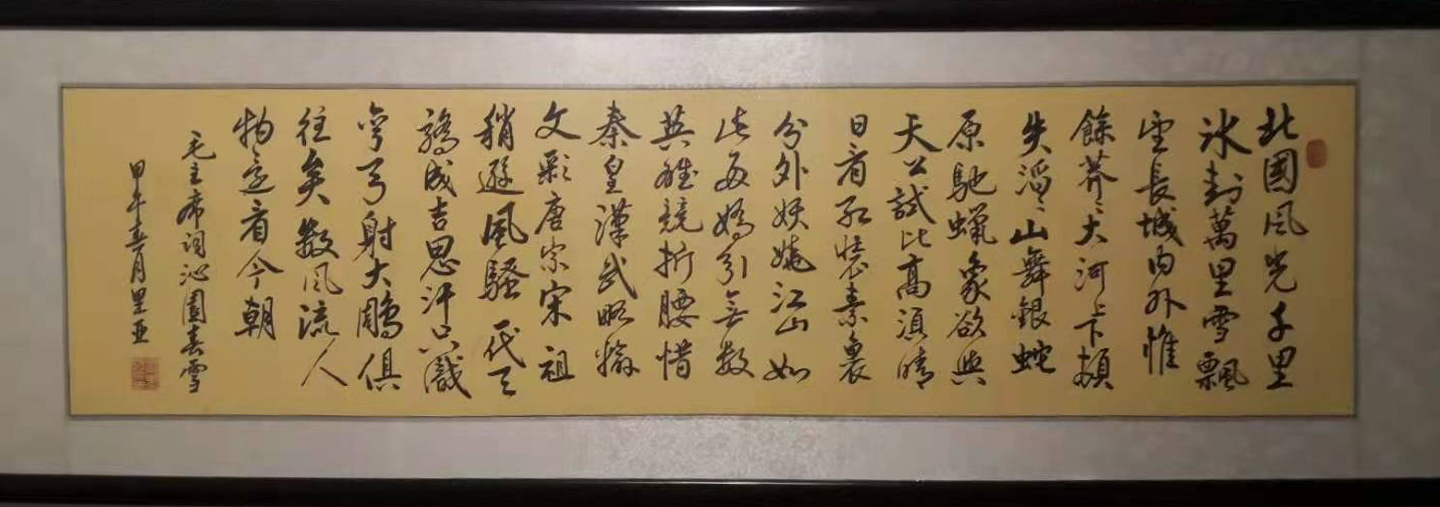 北國風光千里
冰封萬里雪飄
望長城內外惟
餘莽〻大河上下頓
失滔〻山舞銀蛇
原馳蠟象欲與
天公試比高須晴
日看紅裝素裹
分外妖嬈江山如
此多嬌引無數
英雄競折腰惜
秦皇漢武略輸
文彩唐宗宋祖
稍遜風騷一代天
驕成吉思汗只識
彎弓射大雕俱
往矣數風流人
物還看今朝
毛主席詞沁園春雪
甲午春月里亚